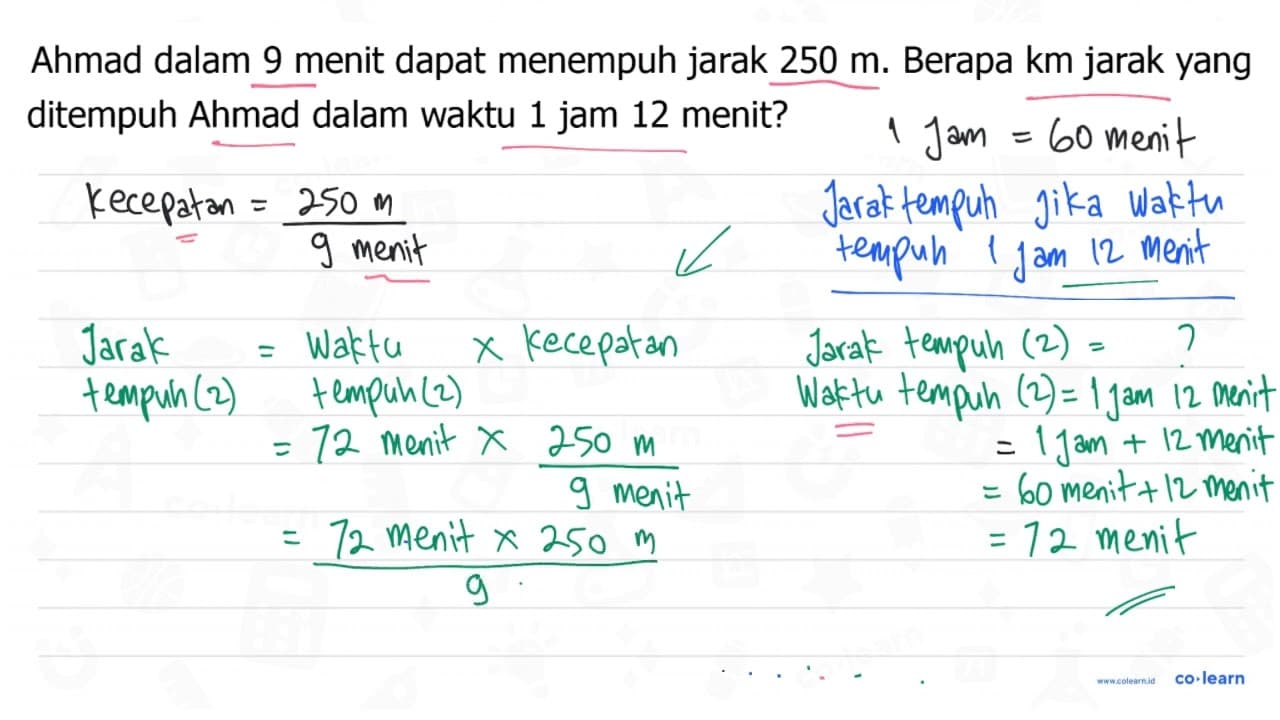 Ahmad dalam 9 menit dapat menempuh jarak 250 m. Berapa km jarak yang
ditempuh Ahmad dalam waktu 1 jam 12 menit?
1 Jam = 60 menit
Kecepatan = 250 m
9 menit
Jarak tempuh Jika Waktu
tempuh 1 Jam 12 Menit
Jarak = Waktu × Kecepatan
tempuh (2) tempuh (2)
= 72 menit × 250 m
9 menit
= 72 menit × 250 m
9
Jarak tempuh (2) = ?
Waktu tempuh (2) = 1 Jam 12 Menit
= 1 Jam + 12 Menit
= 60 menit + 12 Menit
= 72 menit
www.colearn.id co·learn